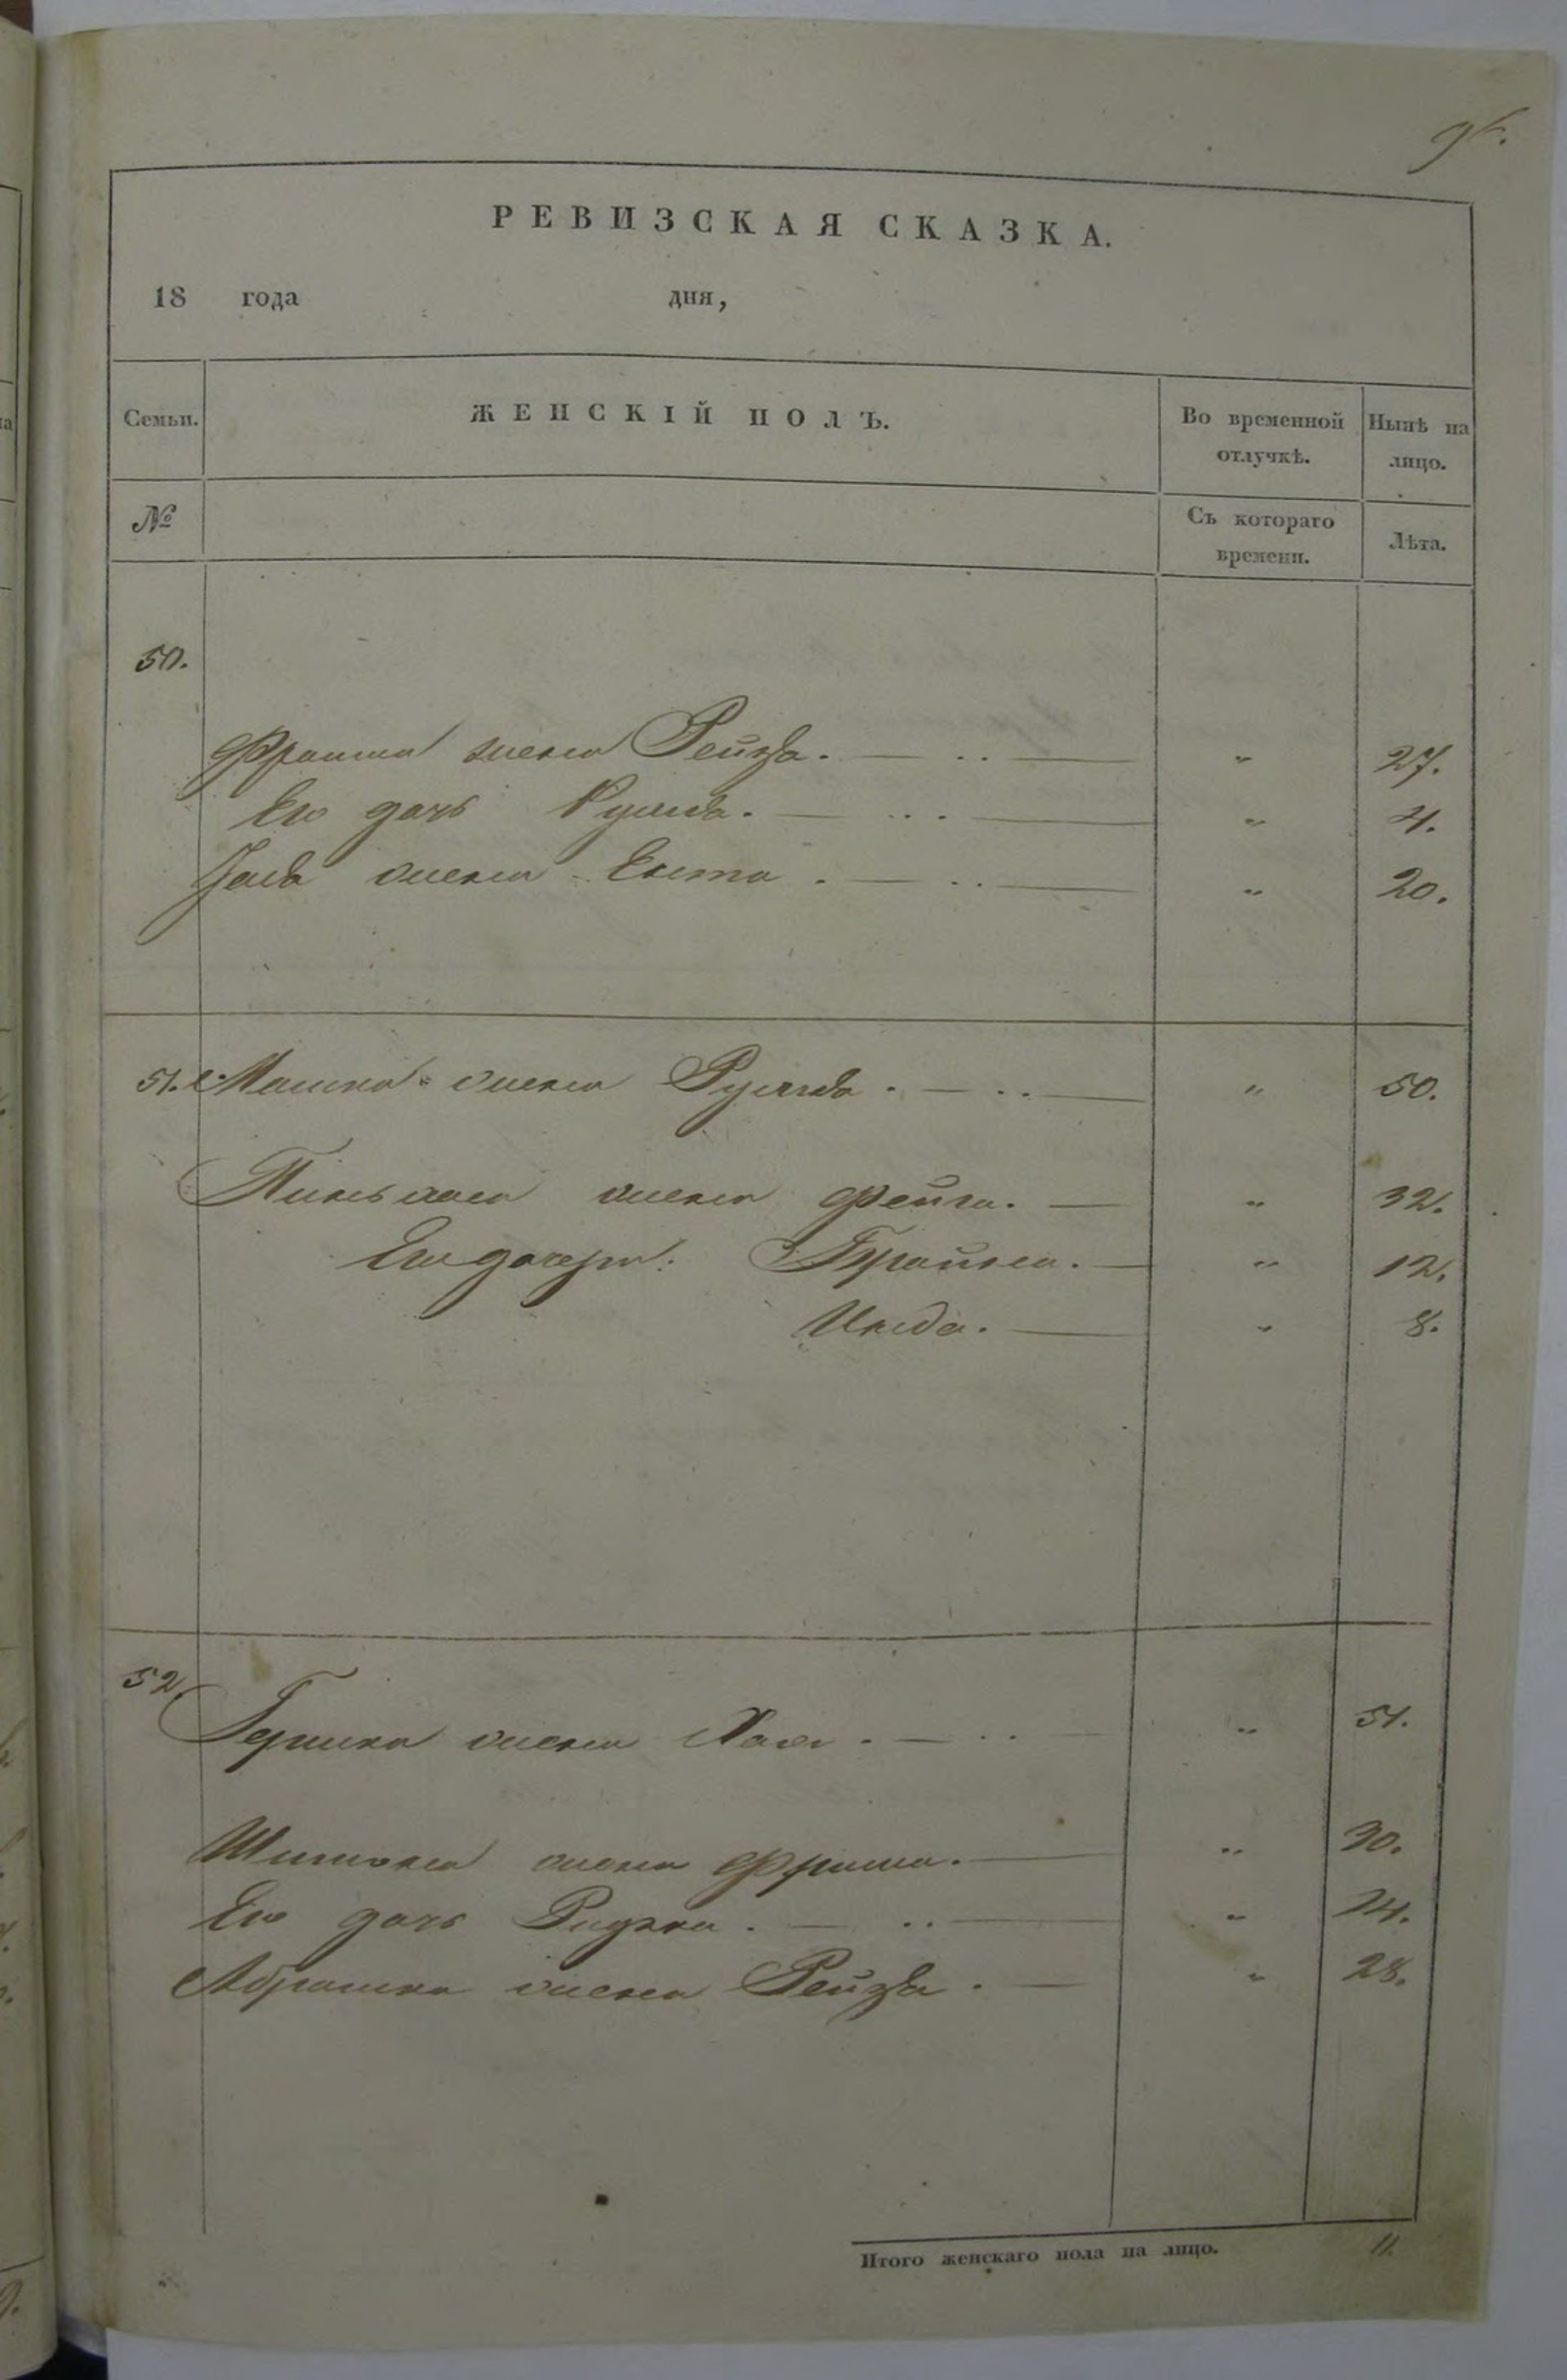 РЕВИЗСКАЯ СКАЗКА.
18 года дня,
Семьи. ЖЕНСКІЙ ПОЛЪ. Во временной отлучкѣ. Нынѣ на лицо.
№ Съ котораго времени. Лѣта.
50.
жена Рейза. — .. — " 27.
Его дочь — ... — " 4.
жена Ента. — .. — " 20.
51. Машка жена — .. — " 50.
жена Фейга. — " 32.
Его дочери: Брайна. — " 12.
— " 8.
52. Гершка жена Хая. — .. — " 51.
жена Фрима. — " 30.
Его дочь — .. — " 14.
Абрашка жена Рейза. — " 28.
Итого женскаго пола на лицо. 11.